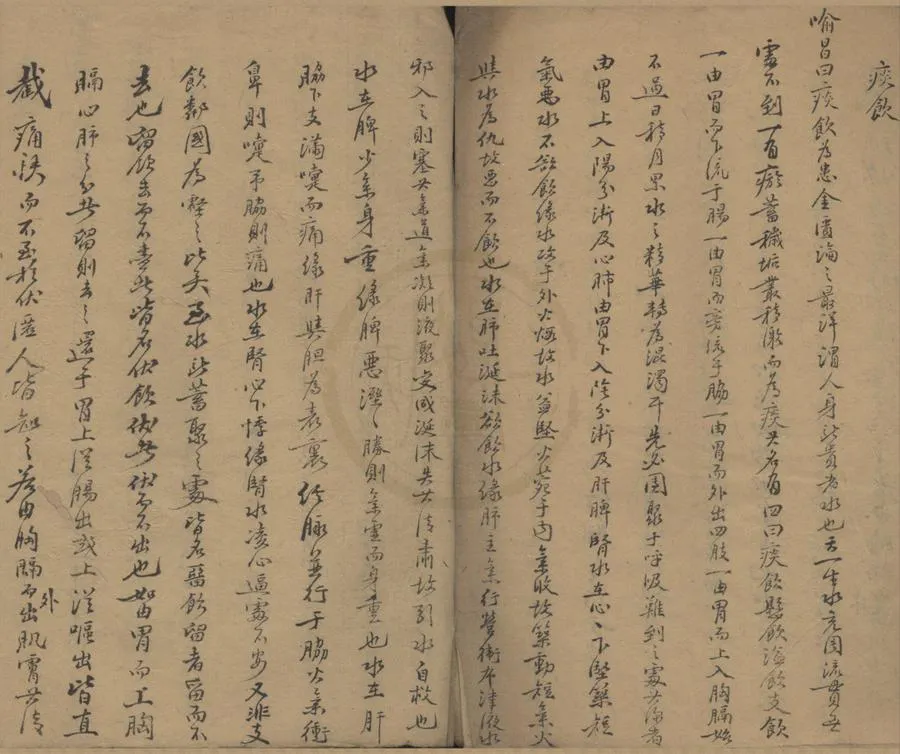 痰飲
喻昌曰痰飲為患金匱論之最詳謂人身所貴者水也天一生水充周流貫無
處不到一有瘀蓄穢垢叢積漸而為痰其名有四曰痰飲懸飲溢飲支飲
一由胃而下流于腸一由胃而旁流于脇一由胃而外出四肢一由胃而上入胸膈始
不過日積月累水之精華轉為混濁于先必團聚于呼吸難到之處其深者
由胃上入陽分漸及心肺由胃下入陰分漸及肝脾腎水在心心下堅築短
氣惡水不欲飲緣水攻于外火燔故水益堅火蓊于內氣收故築動短氣火
與水為仇故惡而不飲也水在肺吐涎沫欲飲水緣肺主氣行營衛布津液水
邪入之則塞其氣道氣凝則液聚變成涎沫失其清肅故引水自救也
水在脾少氣身重緣脾惡溼溼勝則氣虛而身重也水在肝
脇下支滿嚏而痛緣肝與胆為表裏經脉並行于脇火氣衝
鼻則嚏吊脇則痛也水在腎心下悸緣腎水凌心逼處不安又非支
飲鄰國為壑之比矣至水所蓄聚之處皆名留飲留者留而不
去也留飲去而不盡者皆名伏飲伏者伏而不出也如由胃而上胸
膈心肺之分者留則去之還于胃上從腸出或上從嘔出皆直
截痛快而不至於伏匿人皆知之若由胸膈而外出肌膚其清